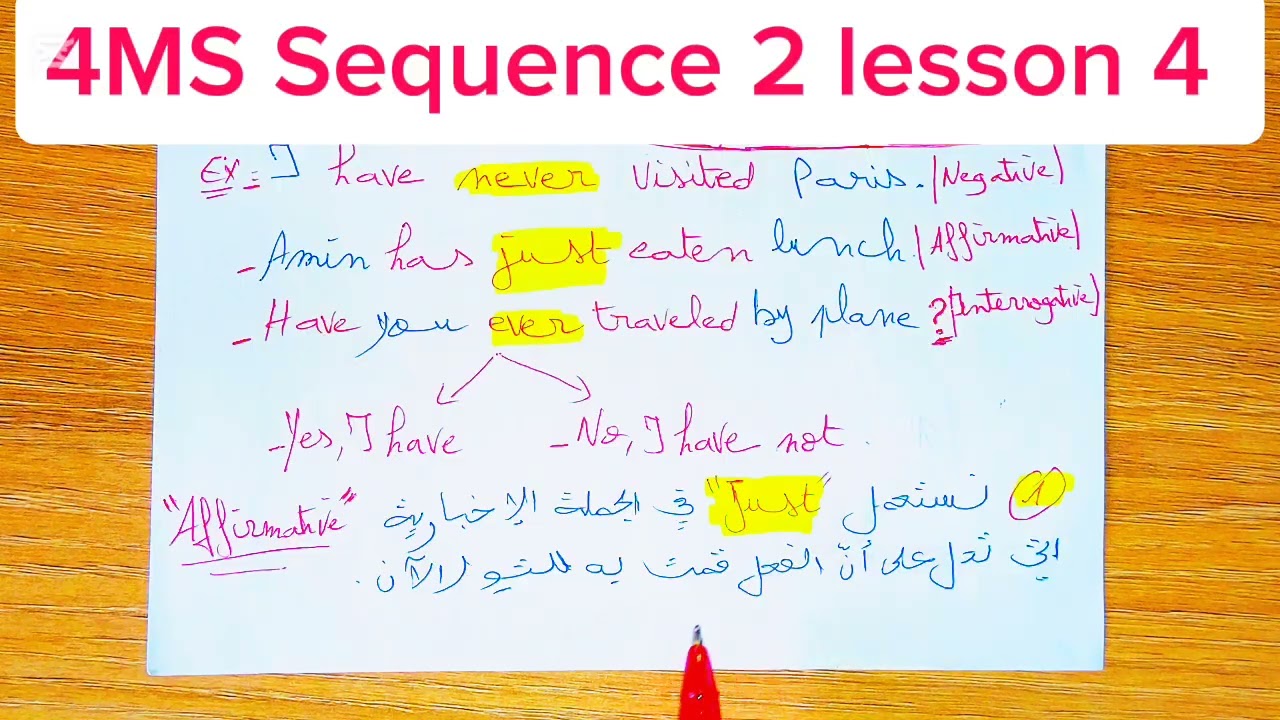 4MS Sequence 2 lesson 4
Ex:- I have never visited Paris. (Negative)
- Amin has just eaten lunch. (Affirmative)
- Have you ever traveled by plane ? (Interrogative)
- Yes, I have - No, I have not.
① نستعمل "Just" في الجملة الإخبارية "Affirmative"
التي تدل على أنّ الفعل قمت به للتو / الآن .